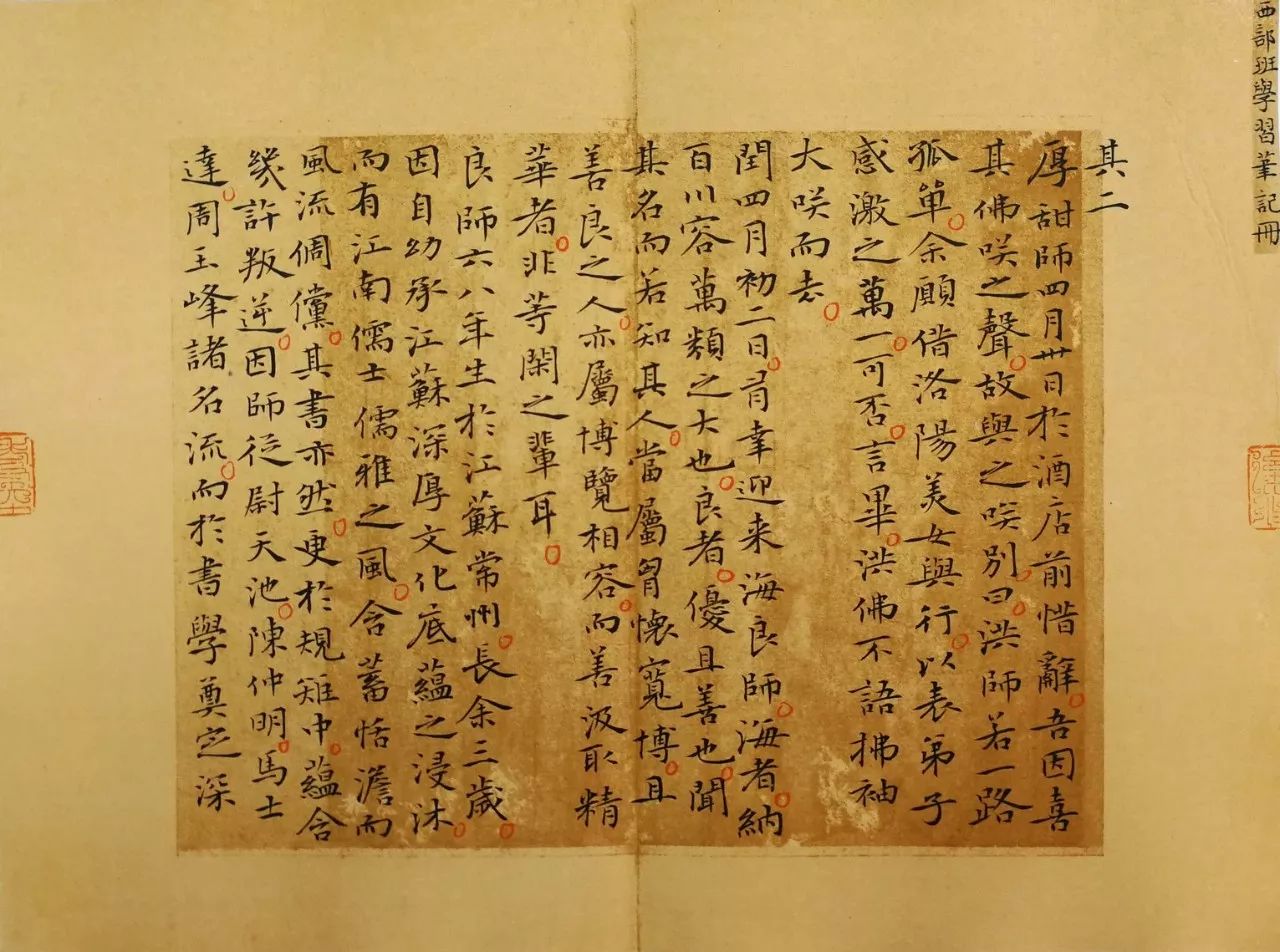 西部班學習筆記冊
其二
厚甜師四月卅日於酒店前惜辭吾因喜
其佛咲之聲故與之咲別曰洪師若一路
孤單余願借洛陽美女與行以表弟子
感激之萬一可否言畢洪佛不語拂袖
大咲而去
閏四月初二日有幸迎来海良師海者納
百川容萬類之大也良者優且善也聞
其名而若知其人當屬胷懷寬博且
善良之人亦屬博覽相容而善汲取精
華者非等閑之輩耳
良師六八年生於江蘇常州長余三歲
因自幼承江蘇深厚文化底蘊之浸沐
而有江南儒士儒雅之風含蓄恬澹而
風流倜儻其書亦然更於規矩中蘊含
幾許叛逆因師從尉天池陳仲明馬士
達周玉峰諸名流而於書學奠定深